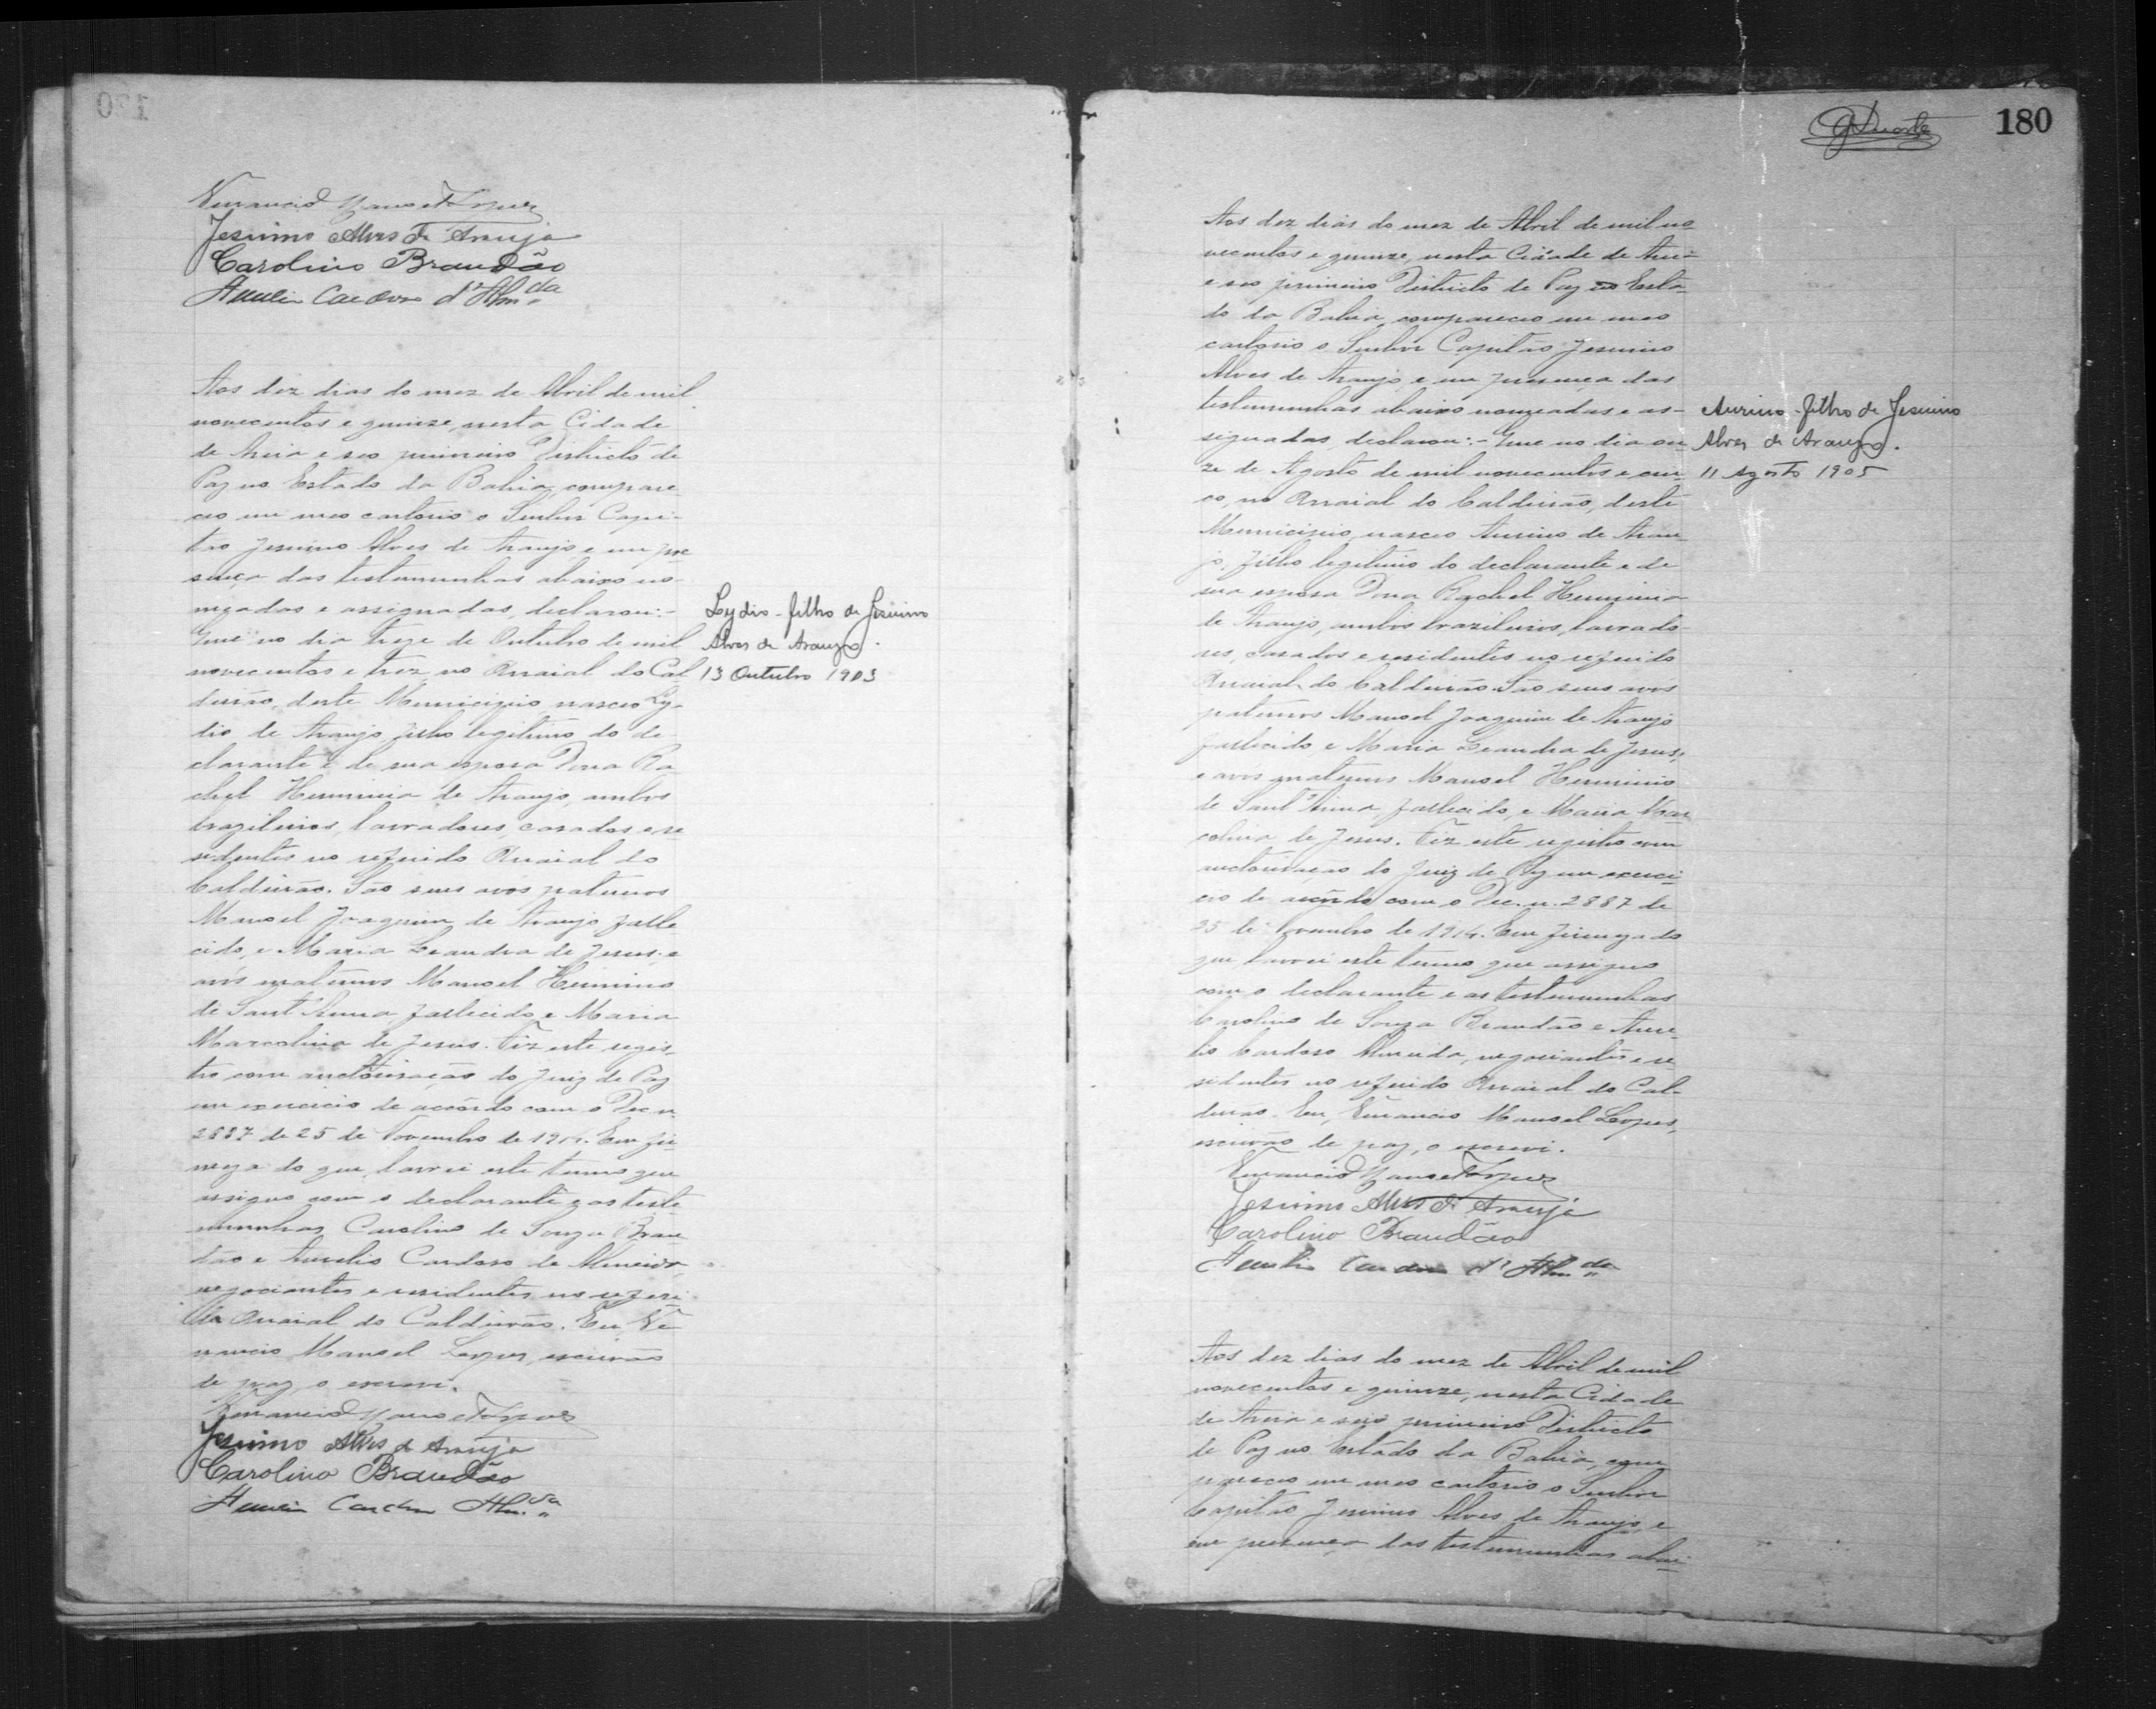 Jesuino Alves de Araujo
Carolino Brandão
Aurelio Cardoso d'Alm.da
Aos dez dias do mez de Abril de mil
novecentos e quinze, nesta Cidade
de Areia e seo primeiro Districto de
Paz no Estado da Bahia, compare
ceo em meo cartorio o Senhor Capi-
tão Jesuino Alves de Araujo e em pre
sença das testemunhas abaixo no-
meadas e assignadas, declarou:-
Que no dia treze de Outubro de mil
novecentos e trez, no Arraial do Cal
deirão, deste Municipio nasceo Ly-
dio de Araujo, filho legitimo do de
clarante e de sua esposa Dona Ra
chel Herminia de Araujo, ambos
brazileiros, lavradores, casados e re
sidentes no referido Arraial do
Caldeirão. São seus avós paternos
Manoel Joaquim de Araujo falle
cido, e Maria Leandra de Jesus, e
avós maternos Manoel Herminio
de Sant'Anna fallecido, e Maria
Marcolina de Jesus. Fiz este regis-
tro com auctorisação do Juiz de Paz
em exercicio de accôrdo com o Dec. n.
2887 de 25 de Novembro de 1914. Em fir
meza do que lavrei este termo que
assigno com o declarante e as teste
munhas Carolino de Souza Bran
dão e Aurelio Cardoso de Almeida,
negociantes e residentes no referi-
do Arraial do Caldeirão. Eu, Ve
nancio Manoel Lopes, escrivão
de paz, o escrevi.
Venancio Manoel Lopes
Jesuino Alves de Araujo
Carolino Brandão
Aurelio Cardoso Alm.da
Lydio - filho de Jesuino
Alves de Araujo.
13 Outubro 1903
180
Aos dez dias do mez de Abril de mil no
vecentos e quinze, nesta Cidade de Arei-
a e seo primeiro Districto de Paz no Esta-
do da Bahia, compareceo em meo
cartorio o Senhor Capitão Jesuino
Alves de Araujo, e em presença das
testemunhas abaixo nomeadas e as-
signadas, declarou:- Que no dia on
ze de Agosto de mil novecentos e cin-
co, no Arraial do Caldeirão, deste
Municipio, nasceo Aurino de Arau-
jo, filho legitimo do declarante e de
sua esposa Dona Rachel Herminia
de Araujo, ambos brazileiros, lavrado-
res, casados e residentes no referido
Arraial do Caldeirão. São seus avós
paternos Manoel Joaquim de Araujo
fallecido, e Maria Leandra de Jesus,
e avós maternos Manoel Herminio
de Sant'Anna, fallecido, e Maria Mar
colina de Jesus. Fiz este registro com
auctorisação do Juiz de Paz em exerci-
cio de accôrdo com o Dec. n. 2887 de
25 de Novembro de 1914. Em firmeza do
que lavrei este termo que assigno
com o declarante e as testemunhas
Carolino de Souza Brandão e Aure-
lio Cardoso Almeida, negociantes e re
sidentes no referido Arraial do Cal-
deirão. Eu, Venancio Manoel Lopes,
escrivão de paz, o escrevi.
Venancio Manoel Lopes
Jesuino Alves de Araujo
Carolino Brandão
Aurelio Cardoso d'Alm.da
Aurino - filho de Jesuino
Alves de Araujo.
11 Agosto 1905
Aos dez dias do mez de Abril de mil
novecentos e quinze, nesta Cidade
de Areia e seo primeiro Districto
de Paz no Estado da Bahia, com
pareceo em meo cartorio o Senhor
Capitão Jesuino Alves de Araujo, e
em presença das testemunhas abai-